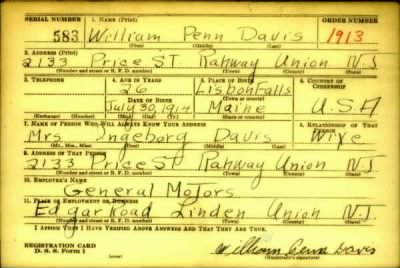 SERIAL NUMBER 1. NAME (Print) ORDER NUMBER
583 William Penn Davis 1913
(First) (Middle) (Last)
2. ADDRESS (Print)
2133 Price ST. Rahway Union N.J.
(Number and street or R. F. D. number) (Town) (County) (State)
3. TELEPHONE 4. AGE IN YEARS 5. PLACE OF BIRTH 6. COUNTRY OF CITIZENSHIP
26 Lisbon Falls
DATE OF BIRTH (Town or county)
July 30, 1914 Maine U.S.A
(Exchange) (Number) (Mo.) (Day) (Yr.) (State or country)
7. NAME OF PERSON WHO WILL ALWAYS KNOW YOUR ADDRESS 8. RELATIONSHIP OF THAT PERSON
Mrs. Ingeborg Davis Wife
(Mr., Mrs., Miss) (First) (Middle) (Last)
9. ADDRESS OF THAT PERSON
2133 Price ST Rahway Union N.J.
(Number and street or R. F. D. number) (Town) (County) (State)
10. EMPLOYER'S NAME
General Motors
11. PLACE OF EMPLOYMENT OR BUSINESS
Edgar Road Linden Union N.J.
(Number and street or R. F. D. number) (Town) (County) (State)
I AFFIRM THAT I HAVE VERIFIED ABOVE ANSWERS AND THAT THEY ARE TRUE.
REGISTRATION CARD
D. S. S. Form 1 (over) William Penn Davis
(Registrant's signature)